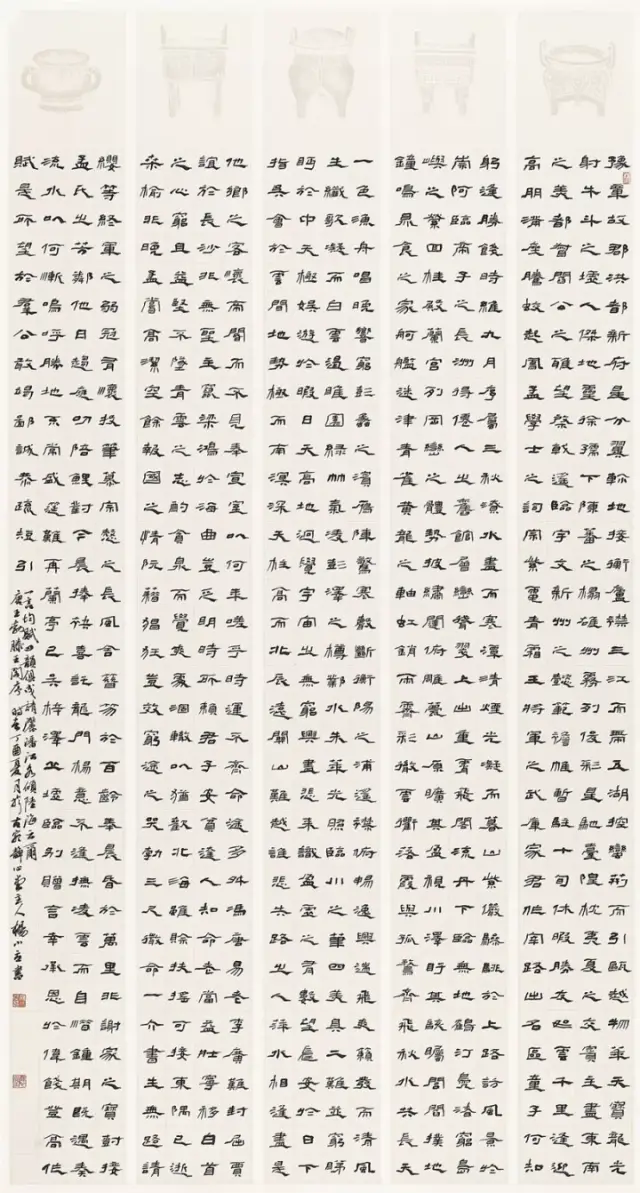 豫章故郡洪都新府星分翼軫地接衡廬襟三江而帶五湖控蠻荊而引甌越物華天寶龍光
射牛斗之墟人傑地靈徐孺下陳蕃之榻雄州霧列俊彩星馳臺隍枕夷夏之交賓主盡東南
之美都督閻公之雅望棨戟遙臨宇文新州之懿範襜帷暫駐十旬休暇勝友如雲千里逢迎
高朋滿座騰蛟起鳳孟學士之詞宗紫電青霜王將軍之武庫家君作宰路出名區童子何知
躬逢勝餞時維九月序屬三秋潦水盡而寒潭清煙光凝而暮山紫儼驂騑於上路訪風景於
崇阿臨帝子之長洲得仙人之舊館層巒聳翠上出重霄飛閣流丹下臨無地鶴汀鳧渚窮島
嶼之縈回桂殿蘭宮列岡巒之體勢披繡闥俯雕甍山原曠其盈視川澤盱其駭矚閭閻撲地
鐘鳴鼎食之家舸艦迷津青雀黃龍之軸虹銷雨霽彩徹雲衢落霞與孤鶩齊飛秋水共長天
一色漁舟唱晚響窮彭蠡之濱雁陣驚寒聲斷衡陽之浦遙襟俯暢逸興遄飛爽籟發而清風
生纖歌凝而白雲遏睢園綠竹氣凌彭澤之樽鄴水朱華光照臨川之筆四美具二難並窮睇
眄於中天極娛遊於暇日天高地迥覺宇宙之無窮興盡悲來識盈虛之有數望長安於日下
指吳會於雲間地勢極而南溟深天柱高而北辰遠關山難越誰悲失路之人萍水相逢盡是
他鄉之客懷帝閽而不見奉宣室以何年嗟乎時運不齊命途多舛馮唐易老李廣難封屈賈
誼於長沙非無聖主竄梁鴻於海曲豈乏明時所賴君子安貧達人知命老當益壯寧移白首
之心窮且益堅不墜青雲之志酌貪泉而覺爽處涸轍以猶歡北海雖賒扶搖可接東隅已逝
桑榆非晚孟嘗高潔空餘報國之情阮籍猖狂豈效窮途之哭勃三尺微命一介書生無路請
纓等終軍之弱冠有懷投筆慕宗愨之長風舍簪笏於百齡奉晨昏於萬里非謝家之寶樹接
孟氏之芳鄰他日趨庭叨陪鯉對今晨捧袂喜託龍門楊意不逢撫凌雲而自惜鍾期既遇奏
流水以何慚嗚呼勝地不常盛筵難再蘭亭已矣梓澤丘墟臨別贈言幸承恩於偉餞登高作
賦是所望於群公敢竭鄙誠恭疏短引
一言均賦四韻俱成請灑潘江各傾陸海云爾
唐王勃滕王閣序 時在丁酉夏月於古泉靜心堂主人楊小立書